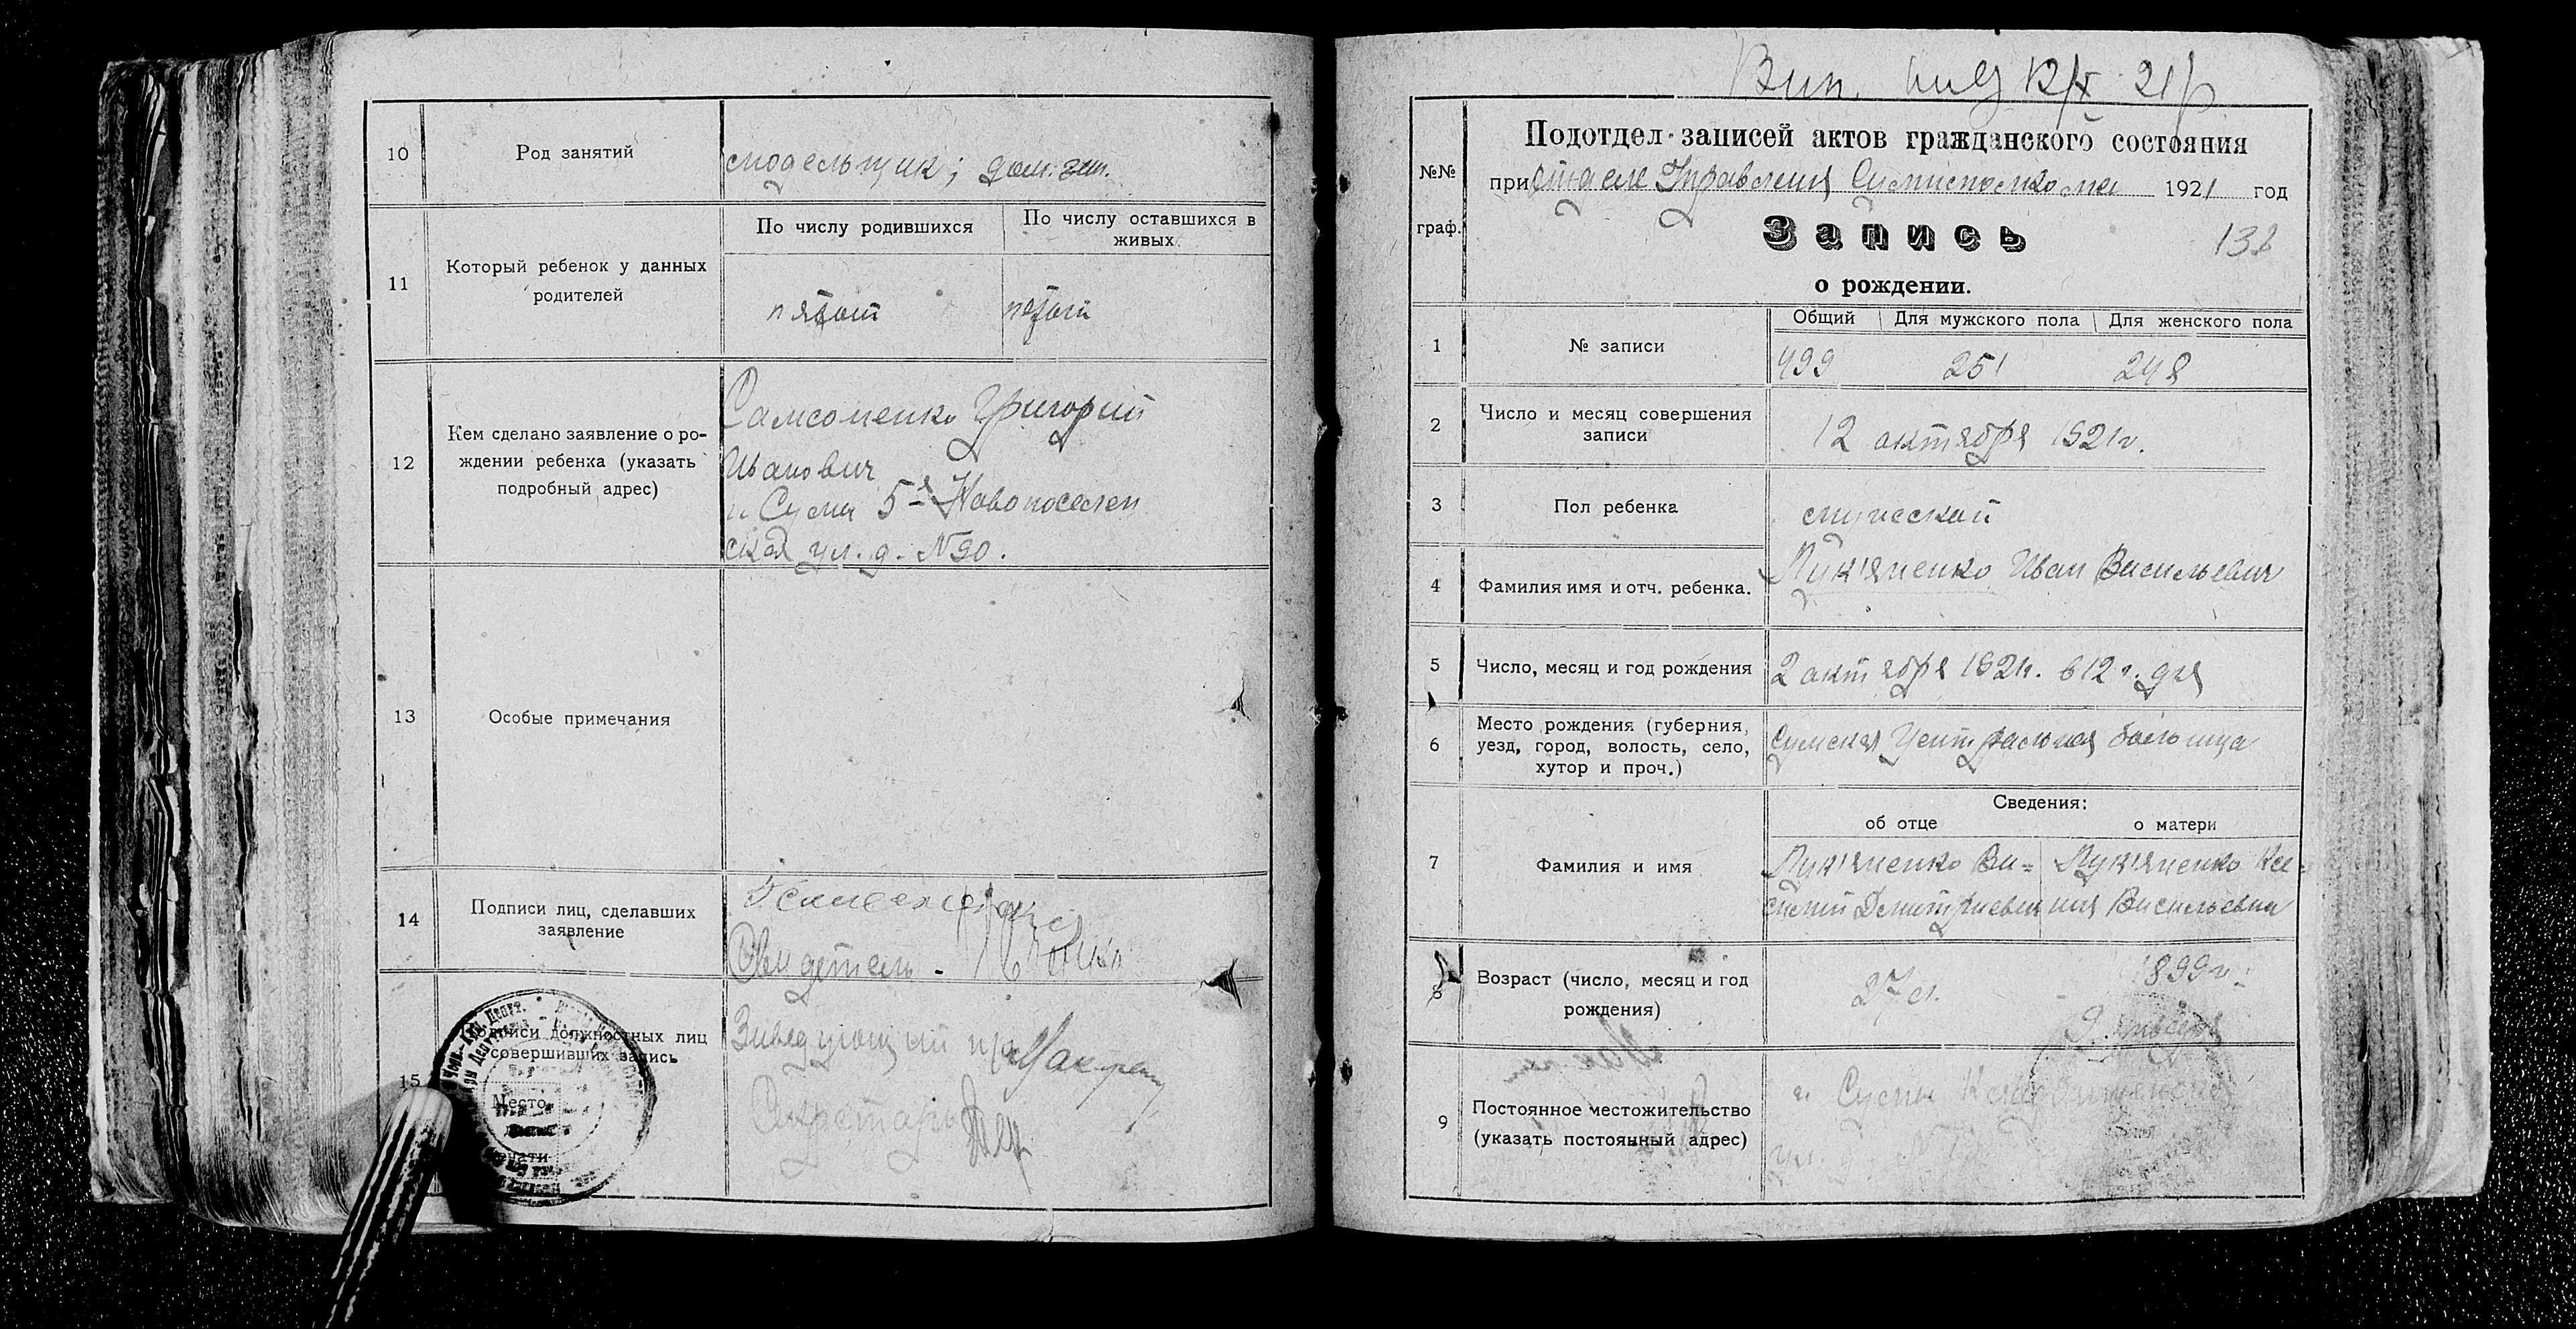 10
Род занятий
модельщик; дом. зан.
11
Который ребенок у данных
родителей
По числу родившихся
По числу оставшихся в
живых
пятый
пятый
12
Кем сделано заявление о ро-
ждении ребенка (указать
подробный адрес)
Самсоненко Григорий
Иванович
г. Сумы 5-я Новопоселен
ская ул. д. № 90.
13
Особые примечания
14
Подписи лиц, сделавших
заявление
Свидетель -
15
Подписи должностных лиц
совершивших запись
Место
печати
Заведующий
Секретарь
Вип. 12/X 21 р
№№
граф.
Подотдел записей актов гражданского состояния
при отделе Управления Сумисполкома 1921 год
Запись
138
о рождении.
1
№ записи
Общий
Для мужского пола
Для женского пола
499
251
248
2
Число и месяц совершения
записи
12 октября 1921 г.
3
Пол ребенка
мужской
4
Фамилия имя и отч. ребенка.
Лук'яненко Иван Васильевич
5
Число, месяц и год рождения
2 октября 1921г. в 12 ч. дня
6
Место рождения (губерния,
уезд, город, волость, село,
хутор и проч.)
Сумская Центральная больница
7
Фамилия и имя
Сведения:
об отце
о матери
Лук'яненко Ва-
силий Дмитриевич
Лук'яненко Ксе-
ния Васильевна
8
Возраст (число, месяц и год
рождения)
27 л.
1899 г.
9 января
9
Постоянное местожительство
(указать постоянный адрес)
г. Сумы
ул. д.